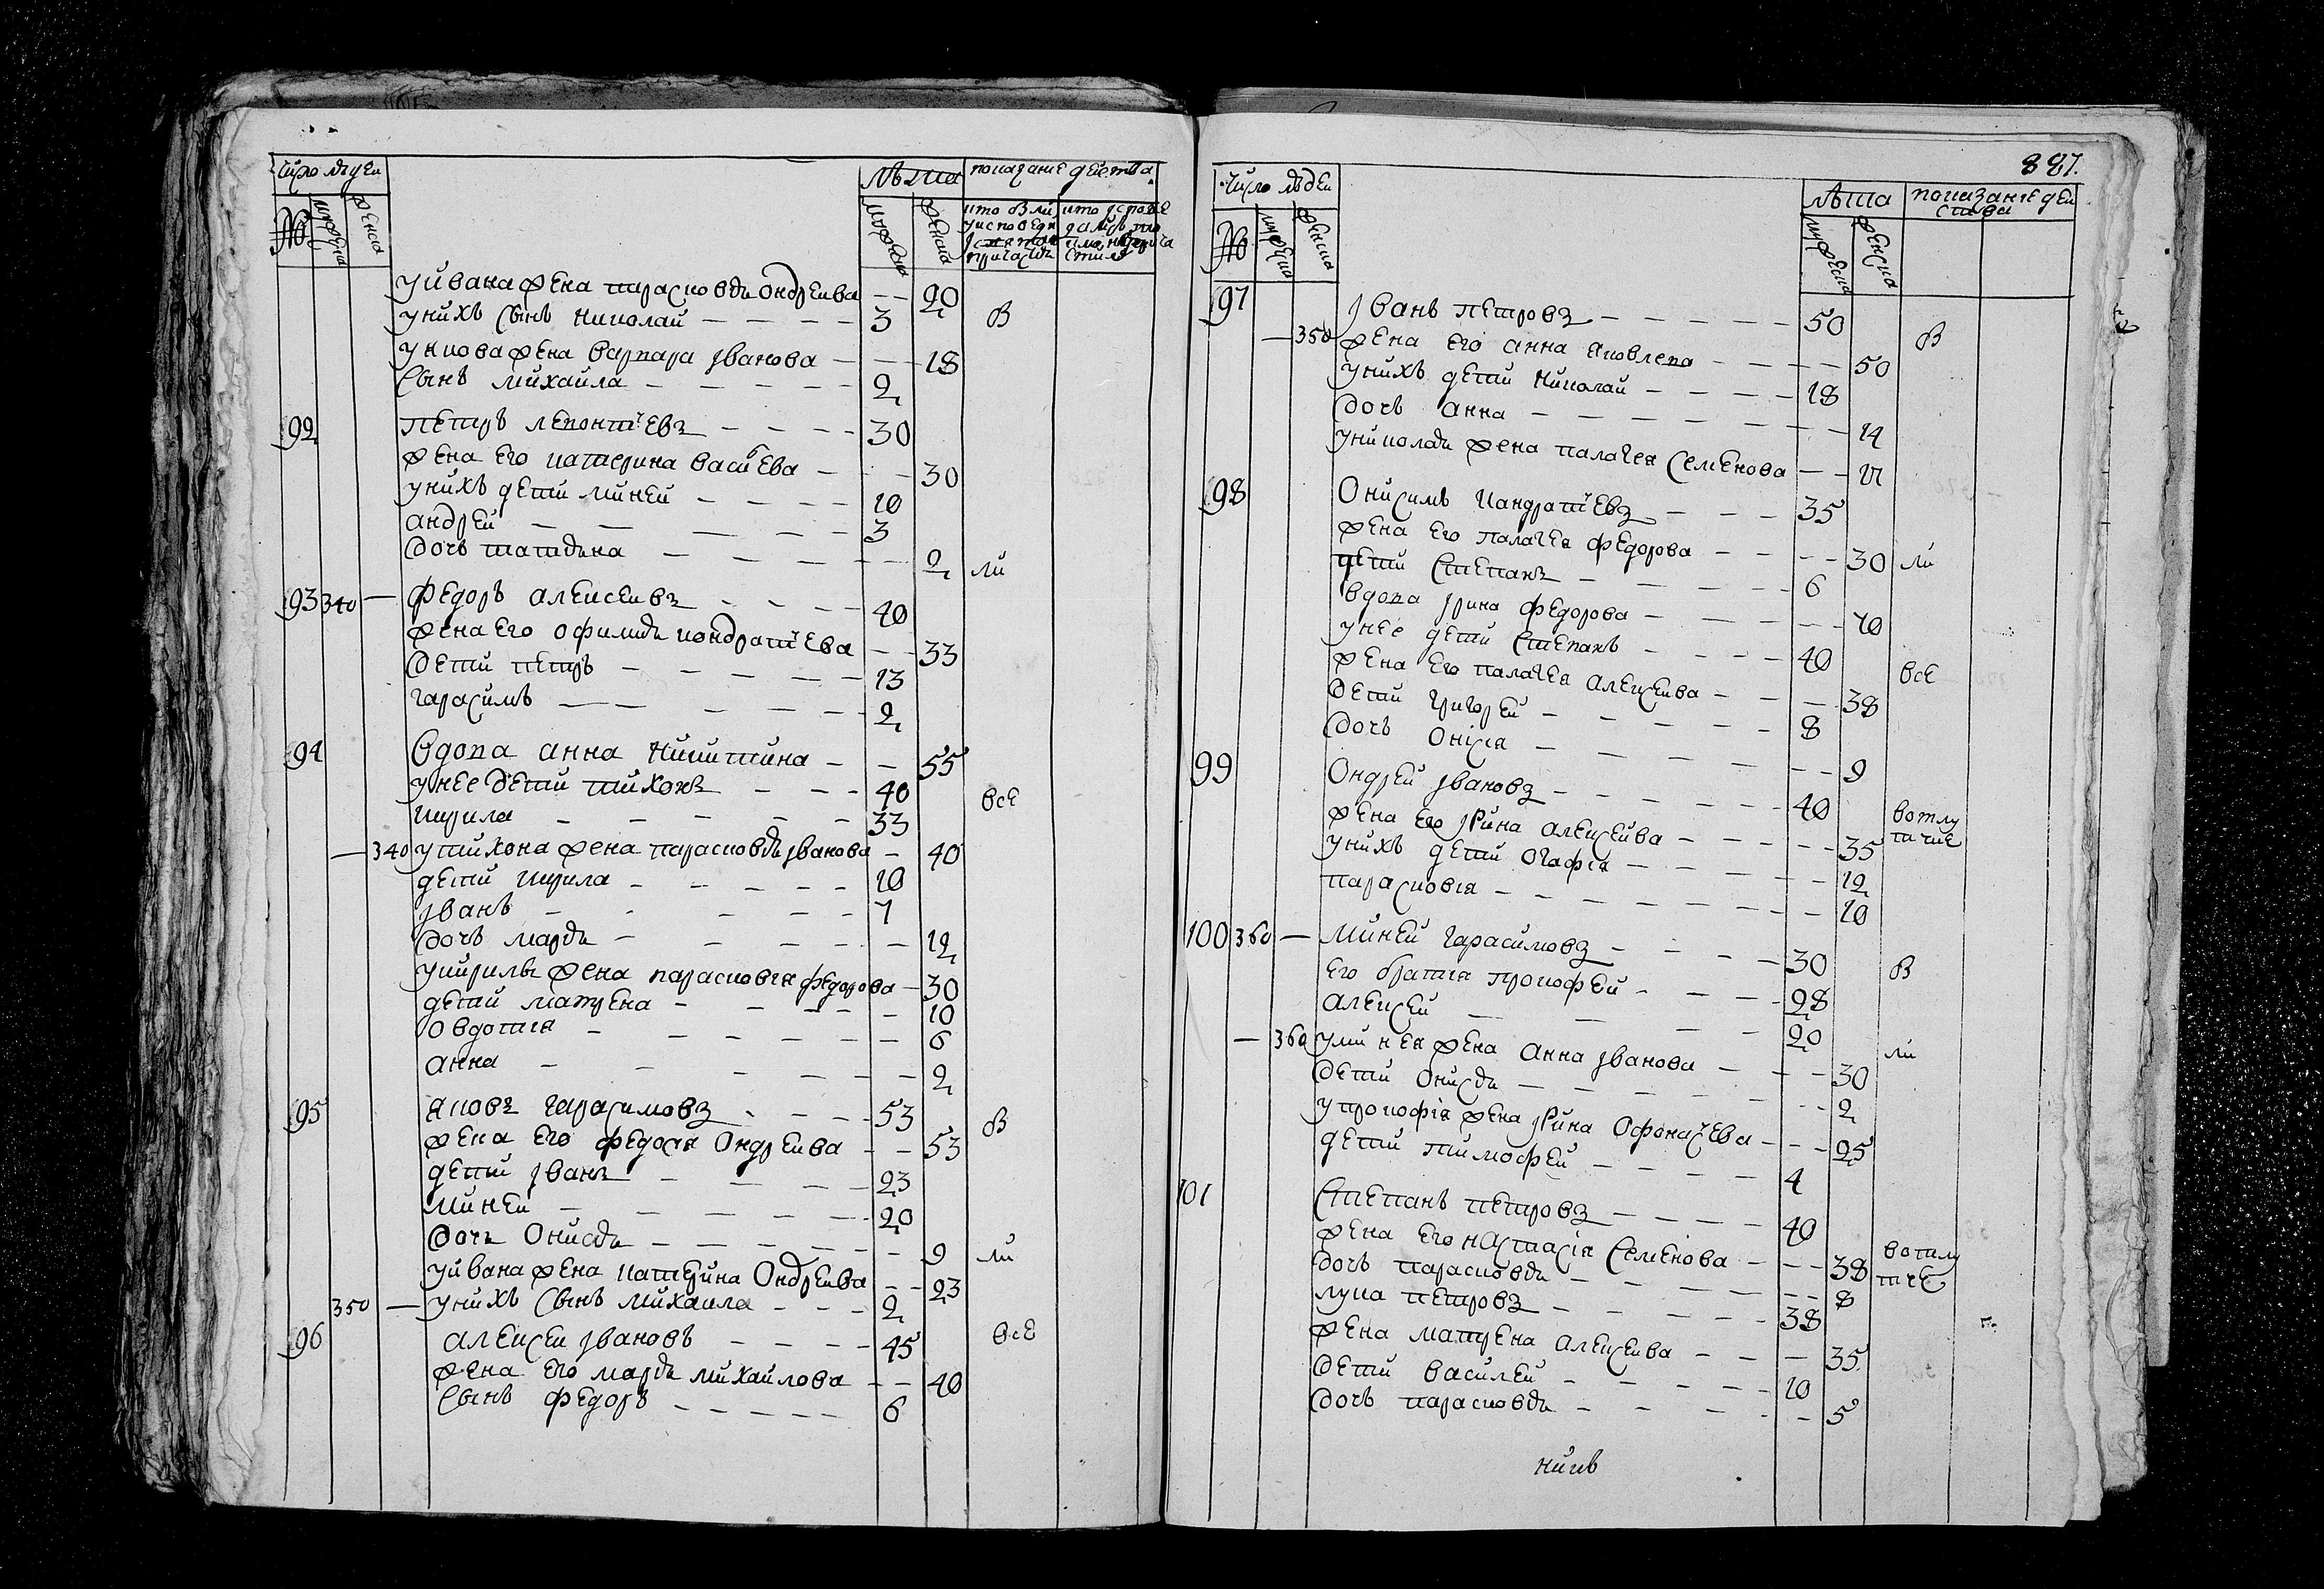 число людеи
лѣта показание действа
№ мужеска женска
мужеска женска
кто были у исповеди и святаго причастия
кто исповедались а не причастились
у Ивана жена парасковья ондреива — 20
у нихъ сынъ николаи — 3 В
у якова жена варвара иванова — 18
сынъ михаила — 2
92 петръ леонтиевъ — 30
жена его катерина васильева — 30
у нихъ дети миней — 10
андрей — 3
дочь татьяна — 2 ли
93 340 — федоръ алексеивъ — 40
жена его офимья кондратиева — 33
дети петръ — 13
гарасимъ — 2
94 вдова анна никитина — 55
у нее дети тихонъ — 40 все
кирила — 33
— 340 у тихона жена парасковья иванова — 40
дети кирила — 10
иванъ — 7
дочь марья — 12
у кирилы жена парасковия федорова — 30
дети матрена — 10
овдотия — 6
анна — 2
95 яковъ гарасимовъ — 53 В
жена его федосия ондреива — 53
дети иванъ — 23
миней — 20
дочь онисья — 9 ли
у ивана жена катерина ондреива — 23
350 — у нихъ сынъ михаила — 2
96 алексеи ивановъ — 45 все
жена его марья михаилова — 40
сынъ федоръ — 6
887.
число людеи
лѣта показание деиства
№ мужеска женска
мужеска женска
97 иванъ петровъ — 50 В
— 350 жена его анна яковлева — 50
у нихъ дети николаи — 18
дочь анна — 14
у николаи жена палагея семенова — 21
98 онисимъ кандратиевъ — 35
жена его палагея федорова — 30 ли
дети степанъ — 6
вдова ирина федорова — 70
у нее дети степанъ — 40 все
жена его палагея алексеива — 38
дети григореи — 8
дочь онисия — 9
99 ондреи ивановъ — 40 вотлу
жена его ирина алексеива — 35 тчке
у нихъ дети огафия — 12
парасковия — 10
100 360 — миней гарасимовъ — 30 В
его братия прокофеи — 28
алексеи — 20
— 360 у минея жена анна иванова — 30 ли
дети онисья — 2
у прокофия жена ирина офонасиева — 25
дети тимофеи — 4
101 степанъ петровъ — 40
жена его настасия семенова — 38 вотлу
дочь парасковья — 8 тчке
лука петровъ — 38
жена матрена алексеива — 35
дети василеи — 10
дочь парасковья — 5